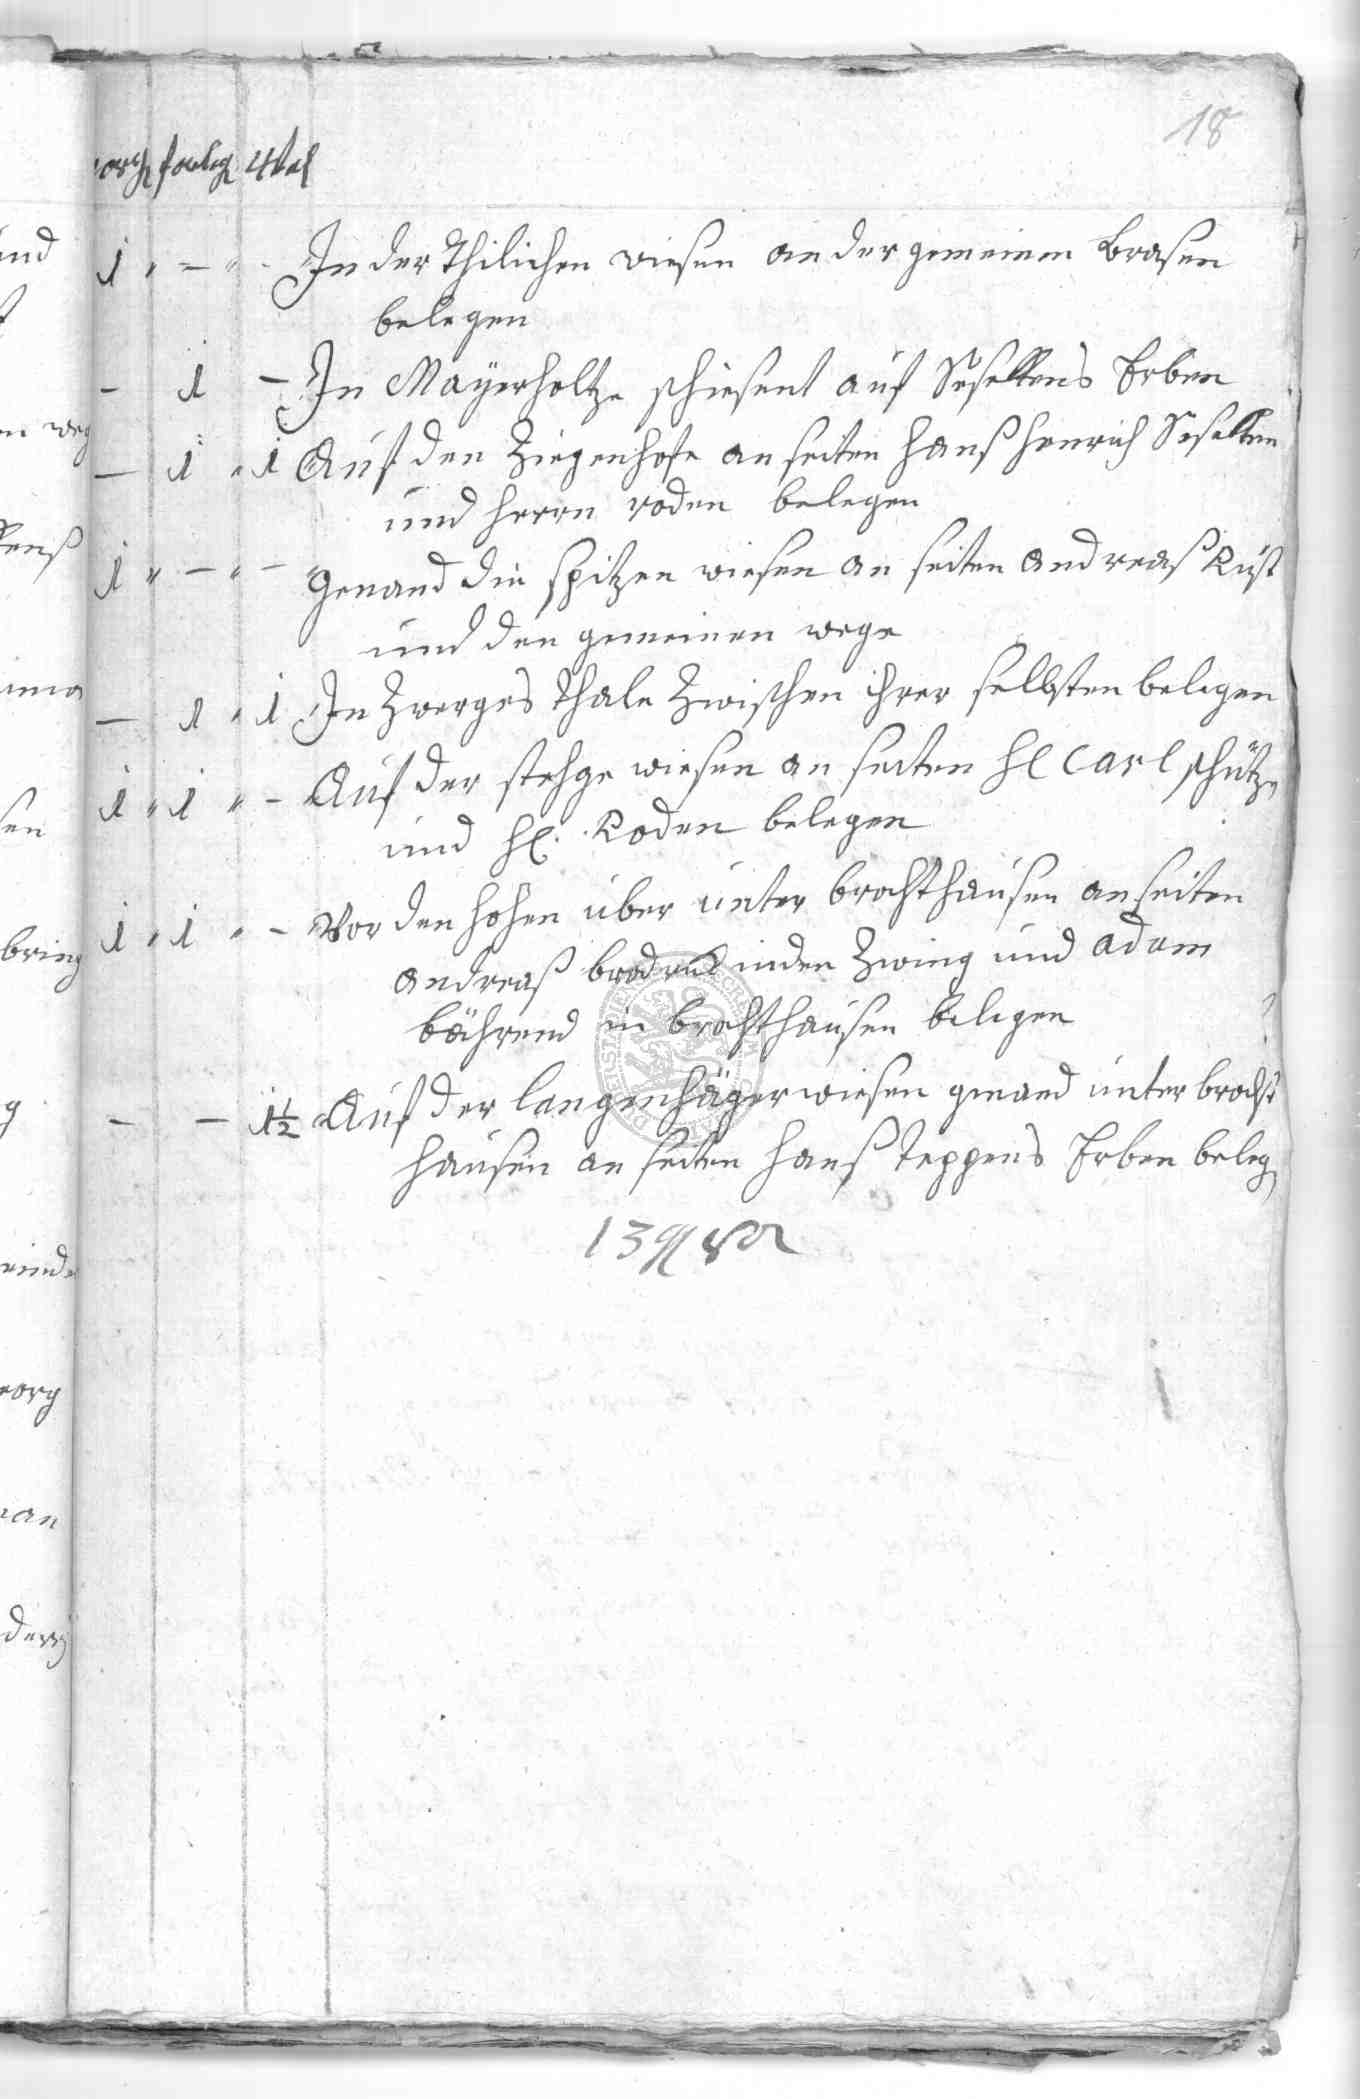 18
1 " – " - In der Thilichen wiesen an der gemeinen Brasen
belegen
– 1 – In Mayerholtze schiesent auf Erben
– 1 " 1 Auf den Ziegenhofe an seiten Hanß Henrich
und Herrn roden belegen
1 " – " – genand die spitzen wiesen an seiten andreaß Rust
und den gemeinen wege
– 1 " 1 In Zwerges Thale Zwischen ihrer selbsten belegen
1 " 1 " – Auf der wiesen an seiten Hl Carl schütze
und Hl. Roden belegen
1 " 1 " – Vor den hohen über unter brochthausen an seiten
andreaß in den Zwing und adam
bährend in brochthausen belegen
– – 1½ Auf der langenhäger wiesen genand unter brochst
hausen an seiten Hanß Teppens Erben beleg